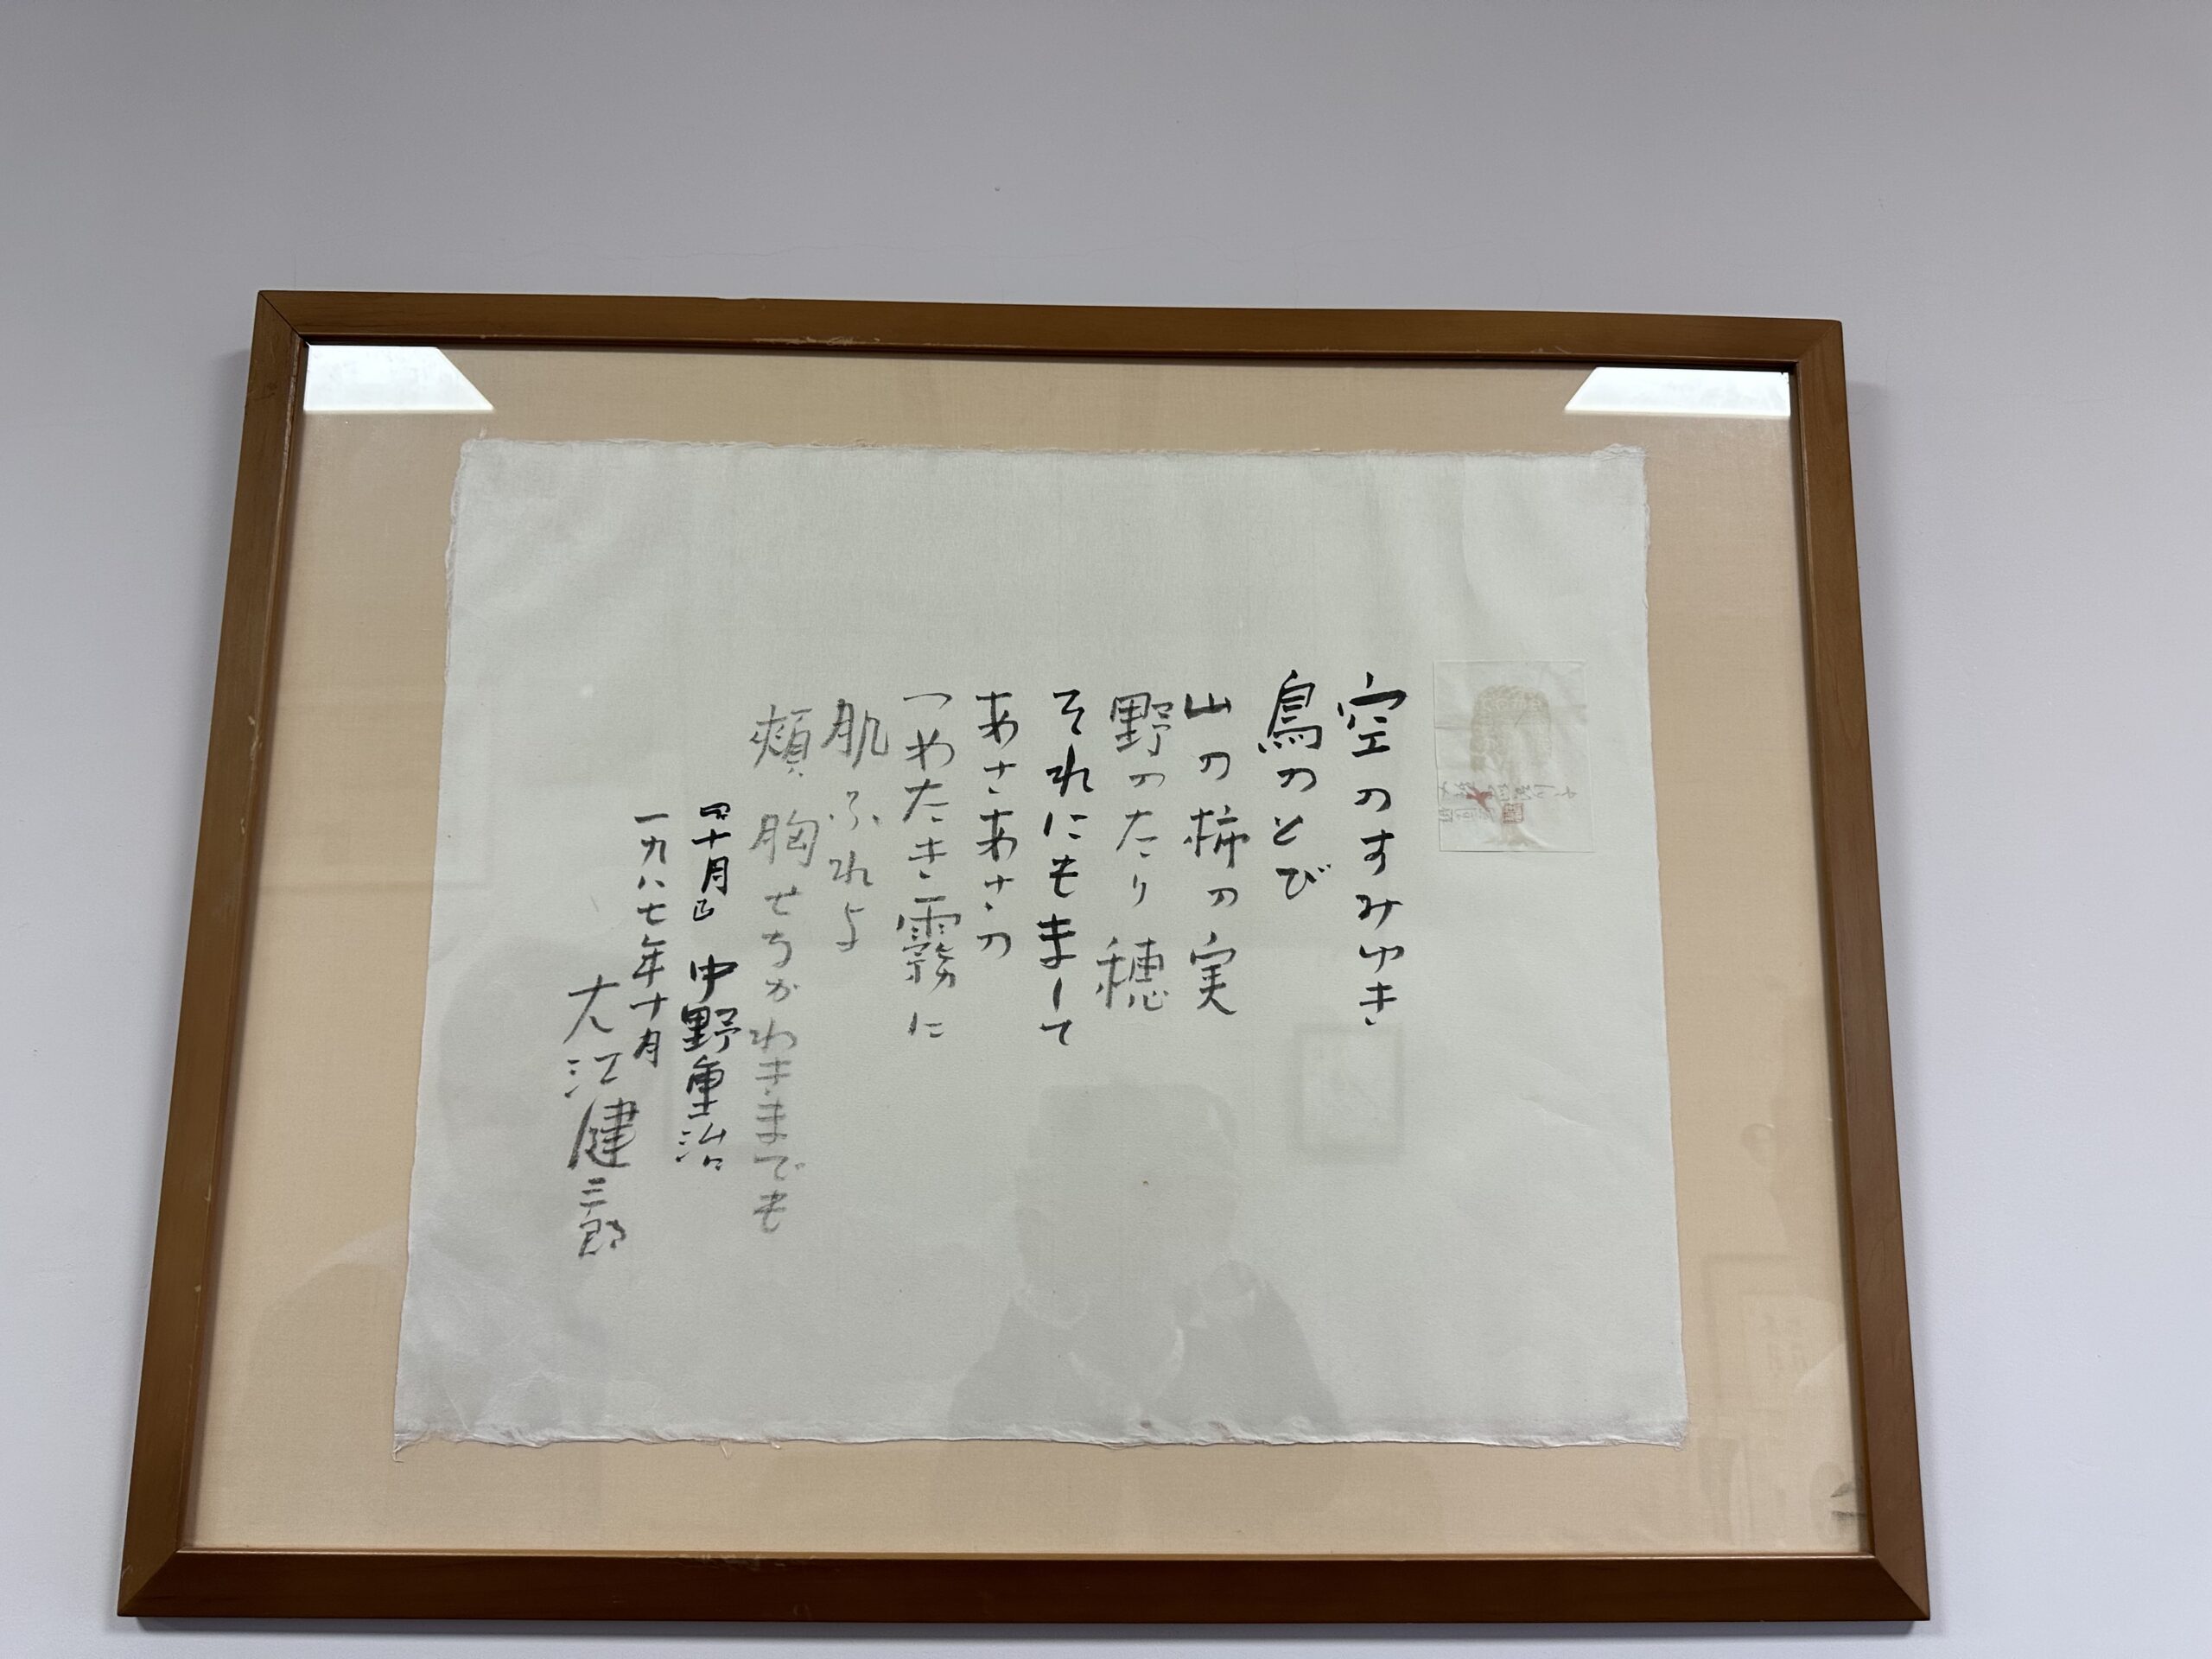 空のすみゆき
鳥のとび
山の柿の実
野のたり穂
それにもまして
あさあさの
つめたき霧に
肌ふれよ
頬 胸 せなかわきまでも
中野重治
一九八七年十月
大江健三郎